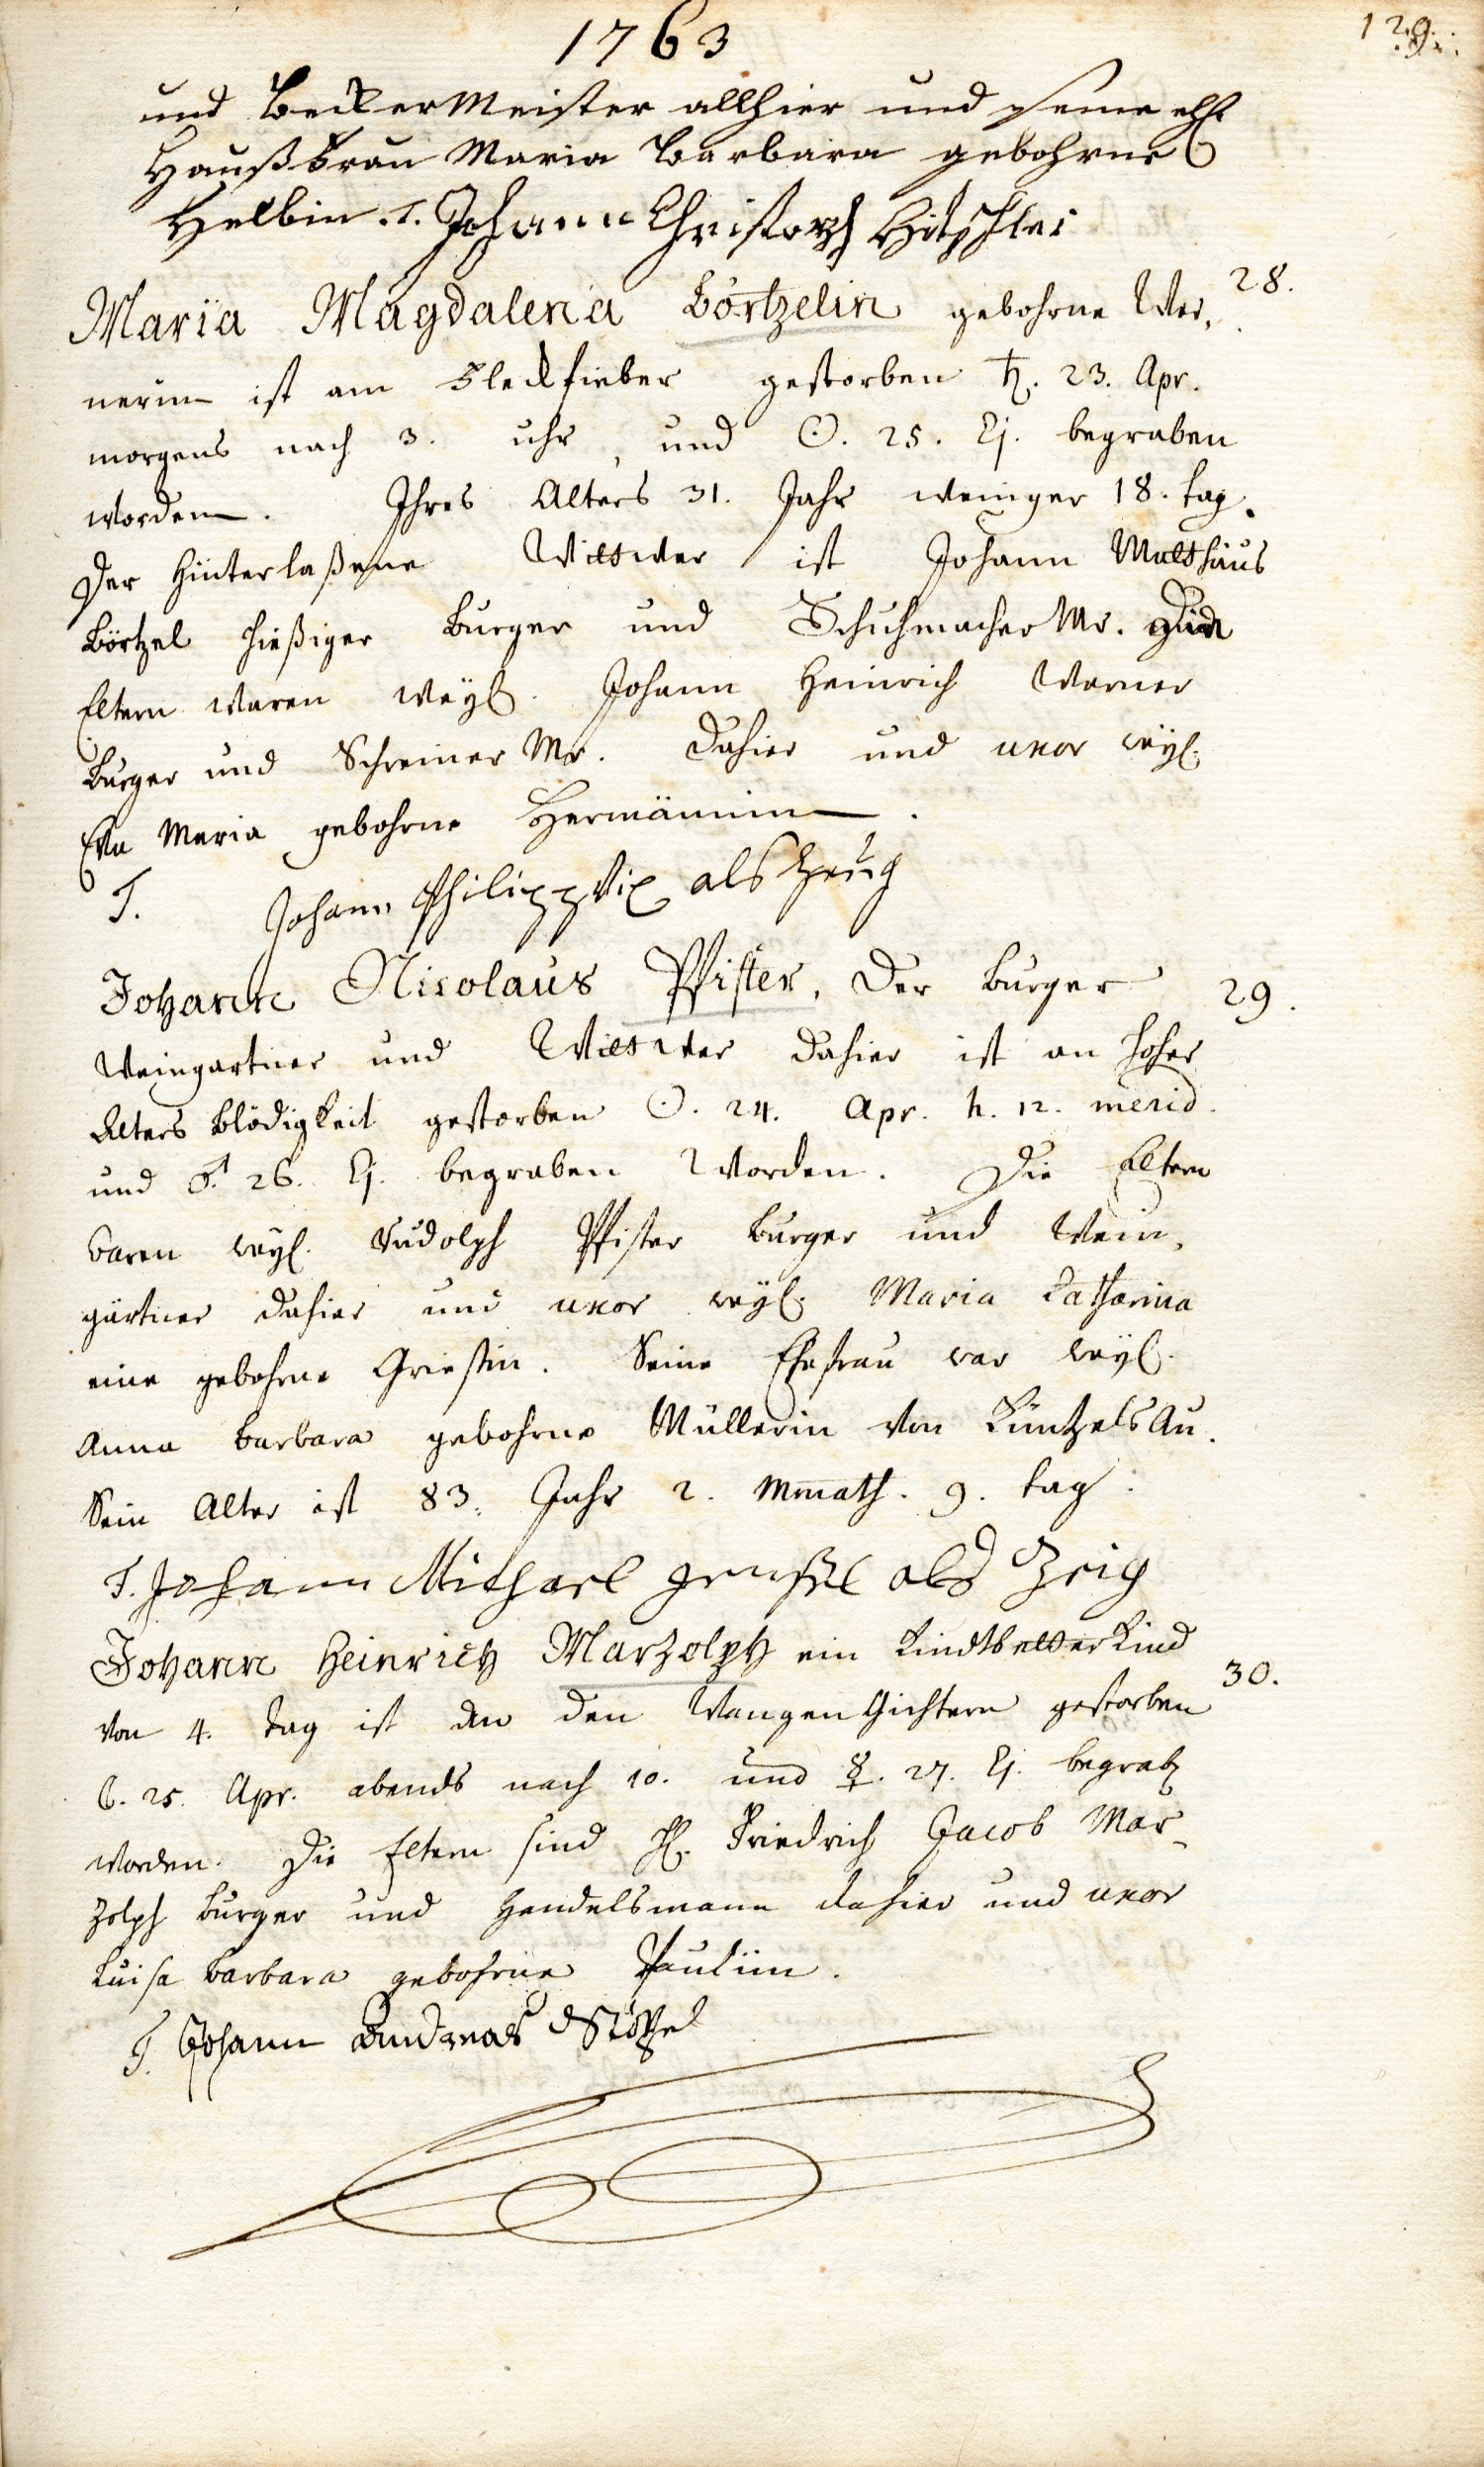 1763
129.
und Becker Meister allhier und seine ehl
Haußfrau Maria Barbara gebohrne
Helbin. T. Johann Christoph Hitschler
28.
Maria Magdalena Börtzelin gebohrne Wer,
nerin ist am Fleckfieber gestorben ♄. 23. Apr.
morgens nach 3. uhr, und ☉. 25. Ej. begraben
worden. Ihres Alters 31. Jahr weniger 18. tag.
Der hinterlaßene Wittwer ist Johann Matthäus
Börtzel hießiger Burger und Schuhmacher Mr. Die
Eltern waren weyl. Johann Heinrich Werner
Burger und Schreiner Mr. dahier und uxor weyl.
Eva Maria gebohrne Hermännin.
T. Johann Philipp Vix als Zeug
29.
Johann Nicolaus Pfister, der Burger
Weingartner und Wittwer dahier ist an hoher
Alters Blödigkeit gestorben ☉. 24. Apr. h. 12. merid.
und ♂. 26. Ej. begraben worden. Die Eltern
waren weyl. Rudolph Pfister Burger und Wein,
gärtner dahier und uxor weyl. Maria Catharina
eine gebohrne Griesin. Seine Ehefrau war weyl.
Anna Barbara gebohrne Müllerin von Küntzels Au.
Sein Alter ist 83. Jahr 2. Monath. 9. tag.
T. Johann Michael als Zeig
30.
Johann Heinrich Marzolph ein Kindtbetterkind
von 4. Tag ist an den Wangen Gichtern gestorben
☾. 25. Apr. abends nach 10. und ☿. 27. Ej. begrab
worden. Die Eltern sind H. Friedrich Jacob Mar-
zolph Burger und Handelsmann dahier und uxor
Luisa Barbara gebohrne Paulin.
T. Johann Andreas Stötzel